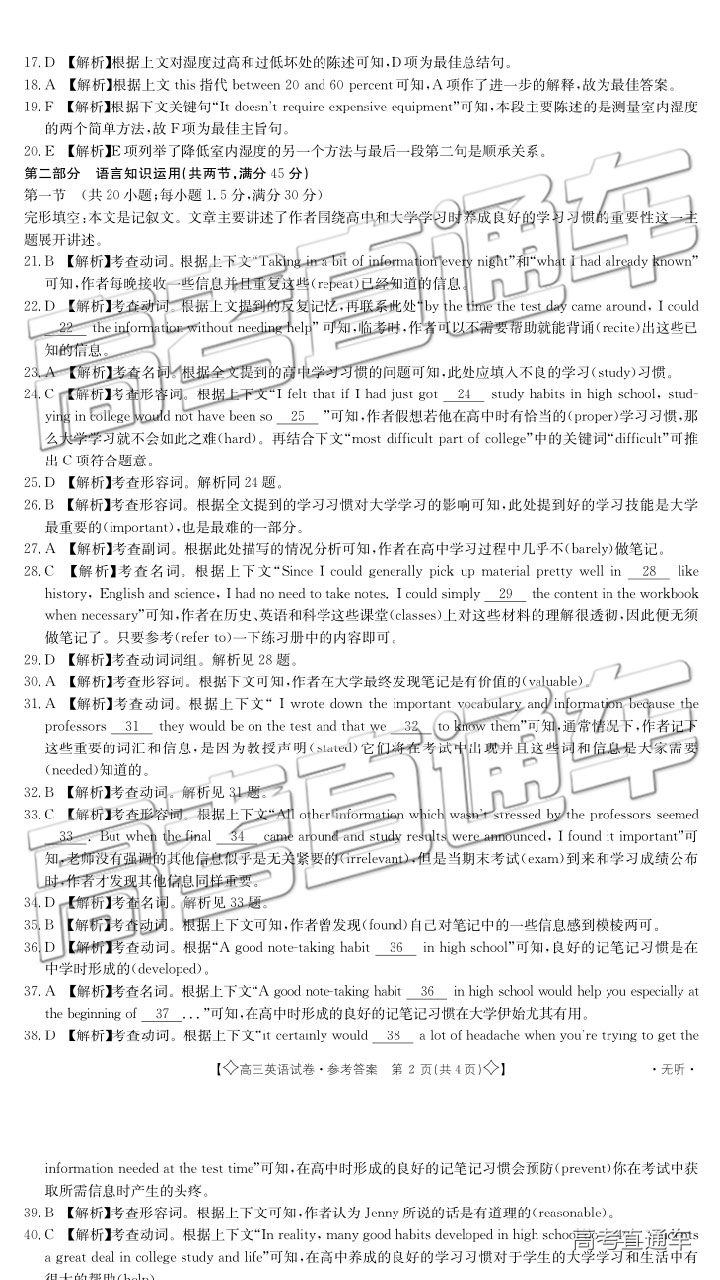 17. D 【解析】根据上文对湿度过高和过低坏处的陈述可知,D项为最佳总结句。
18. A 【解析】根据上文 this 指代 between 20 and 60 percent 可知,A 项作了进一步的解释,故为最佳答案。
19. F 【解析】根据下文关键句“It doesn't require expensive equipment”可知,本段主要陈述的是测量室内湿度
的两个简单方法,故 F 项为最佳主旨句。
20. E 【解析】E项列举了降低室内湿度的另一个方法与最后一段第二句是顺承关系。
第二部分 语言知识运用(共两节,满分 45 分)
第一节 (共 20 小题;每小题 1.5 分,满分 30 分)
完形填空:本文是记叙文。文章主要讲述了作者围绕高中和大学学习时养成良好的学习习惯的重要性这一主
题展开讲述。
21. B 【解析】考查动词。根据上下文“Taking in a bit of information every night”和“what I had already known”
可知,作者每晚接收一些信息并且重复这些(repeat)已经知道的信息。
22. D 【解析】考查动词。根据上文提到的反复记忆,再联系此处“by the time the test day came around, I could
22 the information without needing help” 可知,临考时,作者可以不需要帮助就能背诵(recite)出这些已
知的信息。
23. A 【解析】考查名词。根据全文提到的高中学习习惯的问题可知,此处应填入不良的学习(study)习惯。
24. C 【解析】考查形容词。根据上下文“I felt that if I had just got 24 study habits in high school, stud-
ying in college would not have been so 25 ”可知,作者假想若他在高中时有恰当的(proper)学习习惯,那
么大学学习就不会如此之难(hard)。再结合下文“most difficult part of college”中的关键词“difficult”可推
出 C 项符合题意。
25. D 【解析】考查形容词。解析同 24 题。
26. B 【解析】考查形容词。根据全文提到的学习习惯对大学学习的影响可知,此处提到好的学习技能是大学
最重要的(important),也是最难的一部分。
27. A 【解析】考查副词。根据此处描写的情况分析可知,作者在高中学习过程中几乎不(barely)做笔记。
28. C 【解析】考查名词。根据上下文“Since I could generally pick up material pretty well in 28 like
history, English and science, I had no need to take notes. I could simply 29 the content in the workbook
when necessary”可知,作者在历史、英语和科学这些课堂(classes)上对这些材料的理解很透彻,因此便无须
做笔记了。只要参考(refer to)一下练习册中的内容即可。
29. D 【解析】考查动词词组。解析见 28 题。
30. A 【解析】考查形容词。根据下文可知,作者在大学最终发现笔记是有价值的(valuable)。
31. A 【解析】考查动词。根据上下文“ I wrote down the important vocabulary and information because the
professors 31 they would be on the test and that we 32 to know them”可知,通常情况下,作者记下
这些重要的词汇和信息,是因为教授声明(stated)它们将在考试中出现并且这些词和信息是大家需要
(needed)知道的。
32. B 【解析】考查动词。解析见 31 题。
33. C 【解析】考查形容词。根据上下文“All other information which wasn't stressed by the professors seemed
33 . But when the final 34 came around and study results were announced, I found it important”可
知,老师没有强调的其他信息似乎是无关紧要的(irrelevant),但是当期末考试(exam)到来和学习成绩公布
时,作者才发现其他信息同样重要。
34. D 【解析】考查名词。解析见 33 题。
35. B 【解析】考查动词。根据上下文可知,作者曾发现(found)自己对笔记中的一些信息感到模棱两可。
36. D 【解析】考查动词。根据“A good note-taking habit 36 in high school”可知,良好的记笔记习惯是在
中学时形成的(developed)。
37. A 【解析】考查名词。根据上下文“A good note-taking habit 36 in high school would help you especially at
the beginning of 37 ...”可知,在高中时形成的良好的记笔记习惯在大学伊始尤其有用。
38. D 【解析】考查动词。根据上下文“it certainly would 38 a lot of headache when you're trying to get the
【◇高三英语试卷·参考答案 第 2 页(共 4 页)◇】 ·无听·
information needed at the test time”可知,在高中时形成的良好的记笔记习惯会预防(prevent)你在考试中获
取所需信息时产生的头疼。
39. B 【解析】考查形容词。根据上下文可知,作者认为 Jenny 所说的话是有道理的(reasonable)。
40. C 【解析】考查动词。根据上下文“In reality, many good habits developed in high school students
a great deal in college study and life”可知,在高中养成的良好的学习习惯对于学生的大学学习和生活中有
很大的帮助(help)
高考直通车
高考直通车
高考直通车